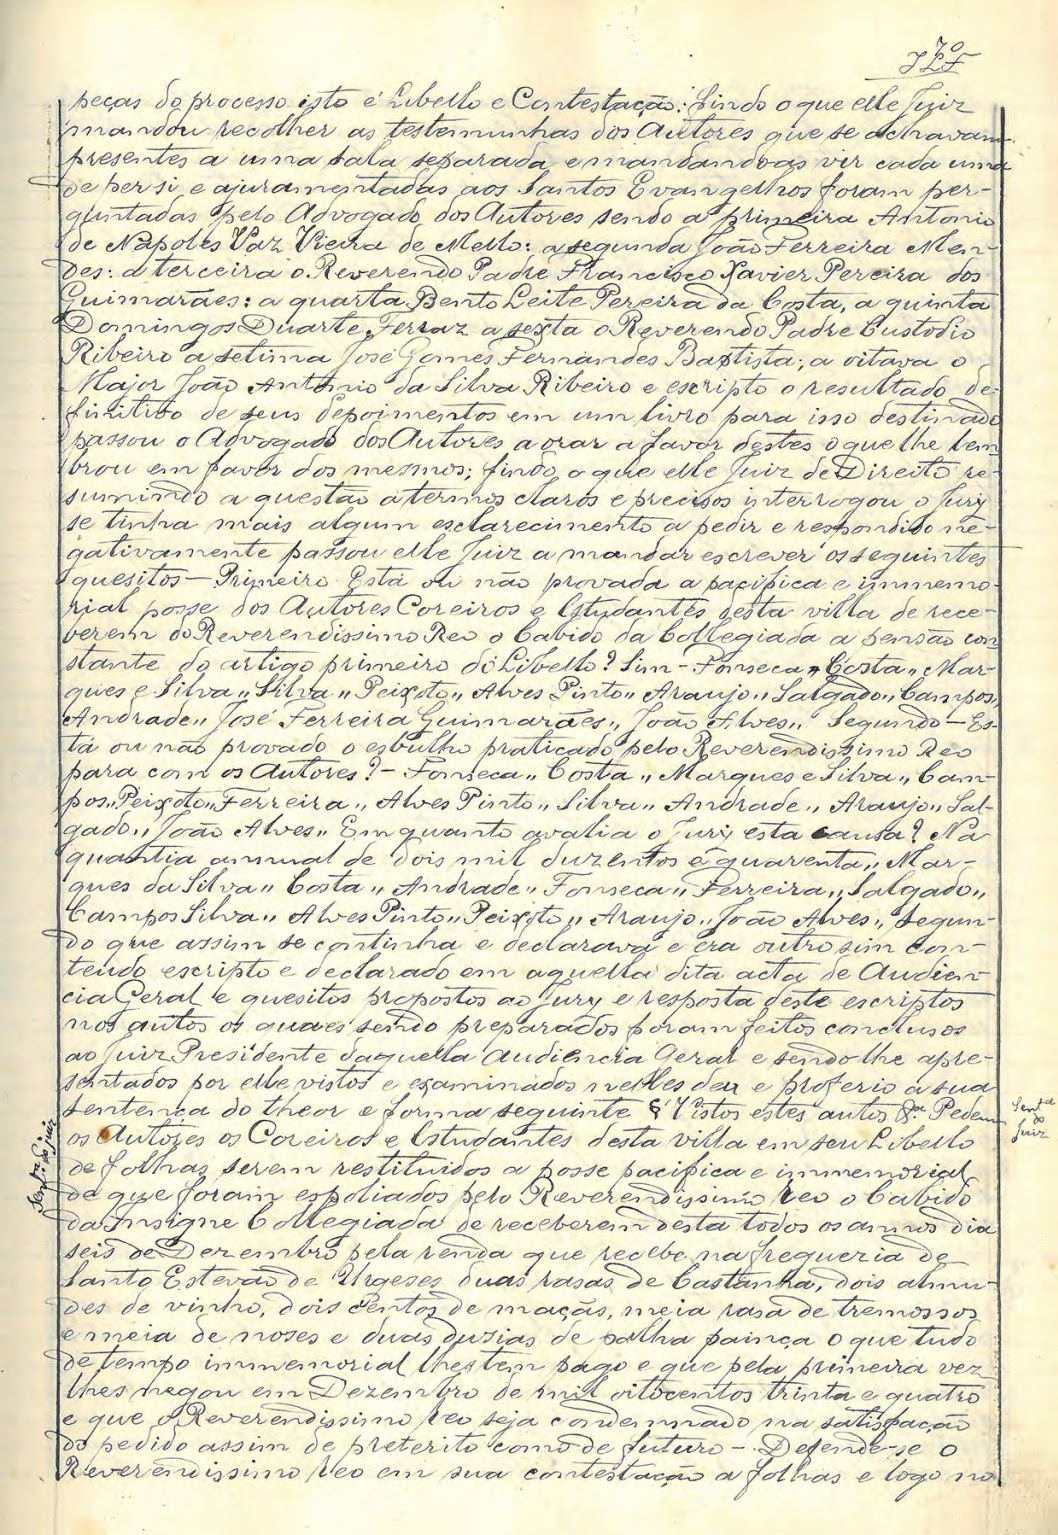 70
peças do processo isto é Libello e Contestação: findo o que elle Juiz
mandou recolher as testemunhas dos Autores que se achavam
presentes a uma sala separada e mandando-as vir cada uma
de per si e ajuramentadas aos Santos Evangelhos foram per-
guntadas pelo Advogado dos Autores sendo a primeira Antonio
de Napoles Vaz Vieira de Mello: a segunda João Ferreira Men-
des: a terceira o Reverendo Padre Francisco Xavier Pereira dos
Guimarães: a quarta Bento Leite Pereira da Costa, a quinta
Domingos Duarte Ferraz a sexta o Reverendo Padre Custodio
Ribeiro a setima José Gomes Fernandes Baptista; a oitava o
Major João Antonio da Silva Ribeiro e escripto o resultado de-
finitivo de seus depoimentos em um livro para isso destinado
passou o Advogado dos Autores a orar a favor destes o que lhe lem
brou em favor dos mesmos; findo o que elle Juiz de Direito re-
sumindo a questão a termos claros e precisos interrogou o Jury
se tinha mais algum esclarecimento a pedir e respondido ne-
gativamente passou elle Juiz a mandar escrever os seguintes
quesitos — Primeiro Está ou não provada a pacifica e immemo-
rial posse dos Autores Coreiros e Estudantes desta villa de rece-
berem do Reverendissimo Reo o Cabido da Collegiada a pensão con
stante do artigo primeiro do Libello? Sim - Fonseca,, Costa,, Mar-
ques e Silva,, Silva,, Peixoto,, Alves Pinto,, Araujo,, Salgado,, Campos,
Andrade,, José Ferreira Guimarães,, João Alves,, Segundo — Es-
tá ou não provado o esbulho praticado pelo Reverendissimo Reo
para com os Autores? - Fonseca,, Costa,, Marques e Silva,, Cam-
pos,, Peixoto,, Ferreira,, Alves Pinto,, Silva,, Andrade,, Araujo,, Sal-
gado,, João Alves,, Em quanto avalia o Jury esta causa? Na
quantia annual de dois mil duzentos e quarenta,, Mar-
ques da Silva,, Costa,, Andrade,, Fonseca,, Ferreira,, Salgado,,
Campos Silva,, Alves Pinto,, Peixoto,, Araujo,, João Alves,, Segun-
do que assim se continha e declarava e era outro sim con-
teudo escripto e declarado em aquella dita acta de Audien-
cia Geral e quesitos propostos ao Jury e resposta deste escriptos
nos autos os quaes sendo preparados foram feitos conclusos
ao Juiz Presidente daquella Audiencia Geral e sendo lhe apre-
sentados por elle vistos e examinados nelles deu e proferio a sua
sentença do theor e forma seguinte § Vistos estes autos &ª. Pedem
os Autores os Coreiros e Estudantes desta villa em seu Libello
de folhas serem restituidos a posse pacifica e immemorial
de que foram espoliados pelo Reverendissimo Reo o Cabido
da Insigne Collegiada de receberem desta todos os annos dia
seis de Dezembro pela renda que recebe na freguezia de
Santo Estevão de Urgeses duas rasas de Castanha, dois almu-
des de vinho, dois Centos de maçãs, meia rasa de tremossos
e meia de noses e duas duzias de palha painça o que tudo
de tempo immemorial lhes tem pago e que pela primeira vez
lhes negou em Dezembro de mil oitocentos trinta e quatro
e que o Reverendissimo Reo seja condemnado na satisfação
do pedido assim de preterito como de futuro - Defende-se o
Reverendissimo Reo em sua contestação a folhas e logo no
Sentª
do
Juiz
Sentª do Juiz